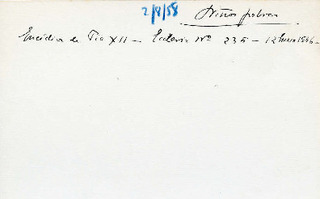 2/8/58 Niños pobres
Encíclica de Pio XII — Ecclesia Nº 235 — 12 Enero 1946 —